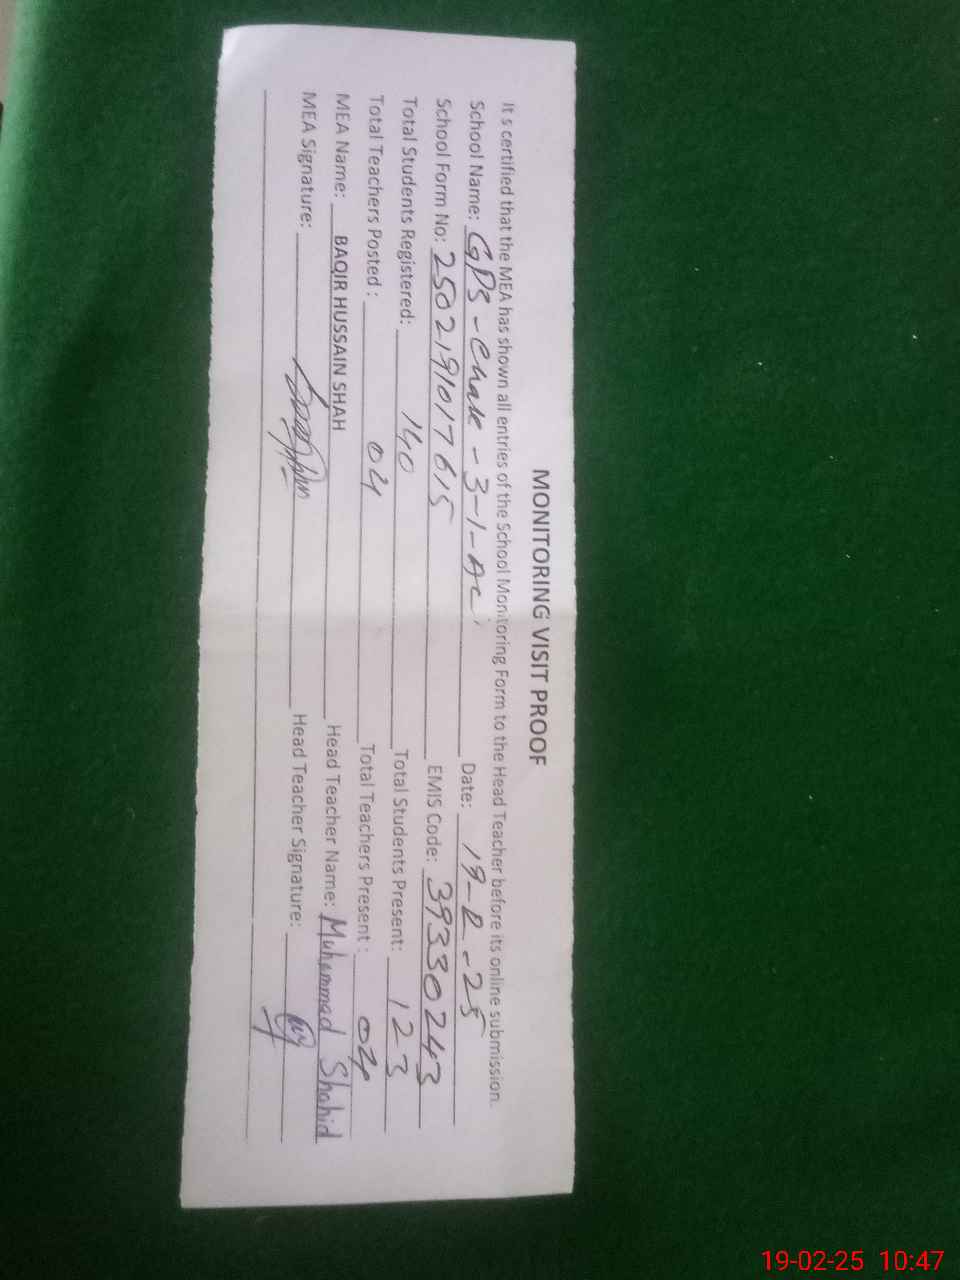 MONITORING VISIT PROOF
It s certified that the MEA has shown all entries of the School Monitoring Form to the Head Teacher before its online submission.
School Name: GPS - Chak - 3-1-AL Date: 19-2-25
School Form No: 2502191017615 EMIS Code: 39330243
Total Students Registered: 140 Total Students Present: 123
Total Teachers Posted : 04 Total Teachers Present : 04
MEA Name: BAQIR HUSSAIN SHAH Head Teacher Name: Muhammad Shahid
MEA Signature: Head Teacher Signature:
19-02-25 10:47